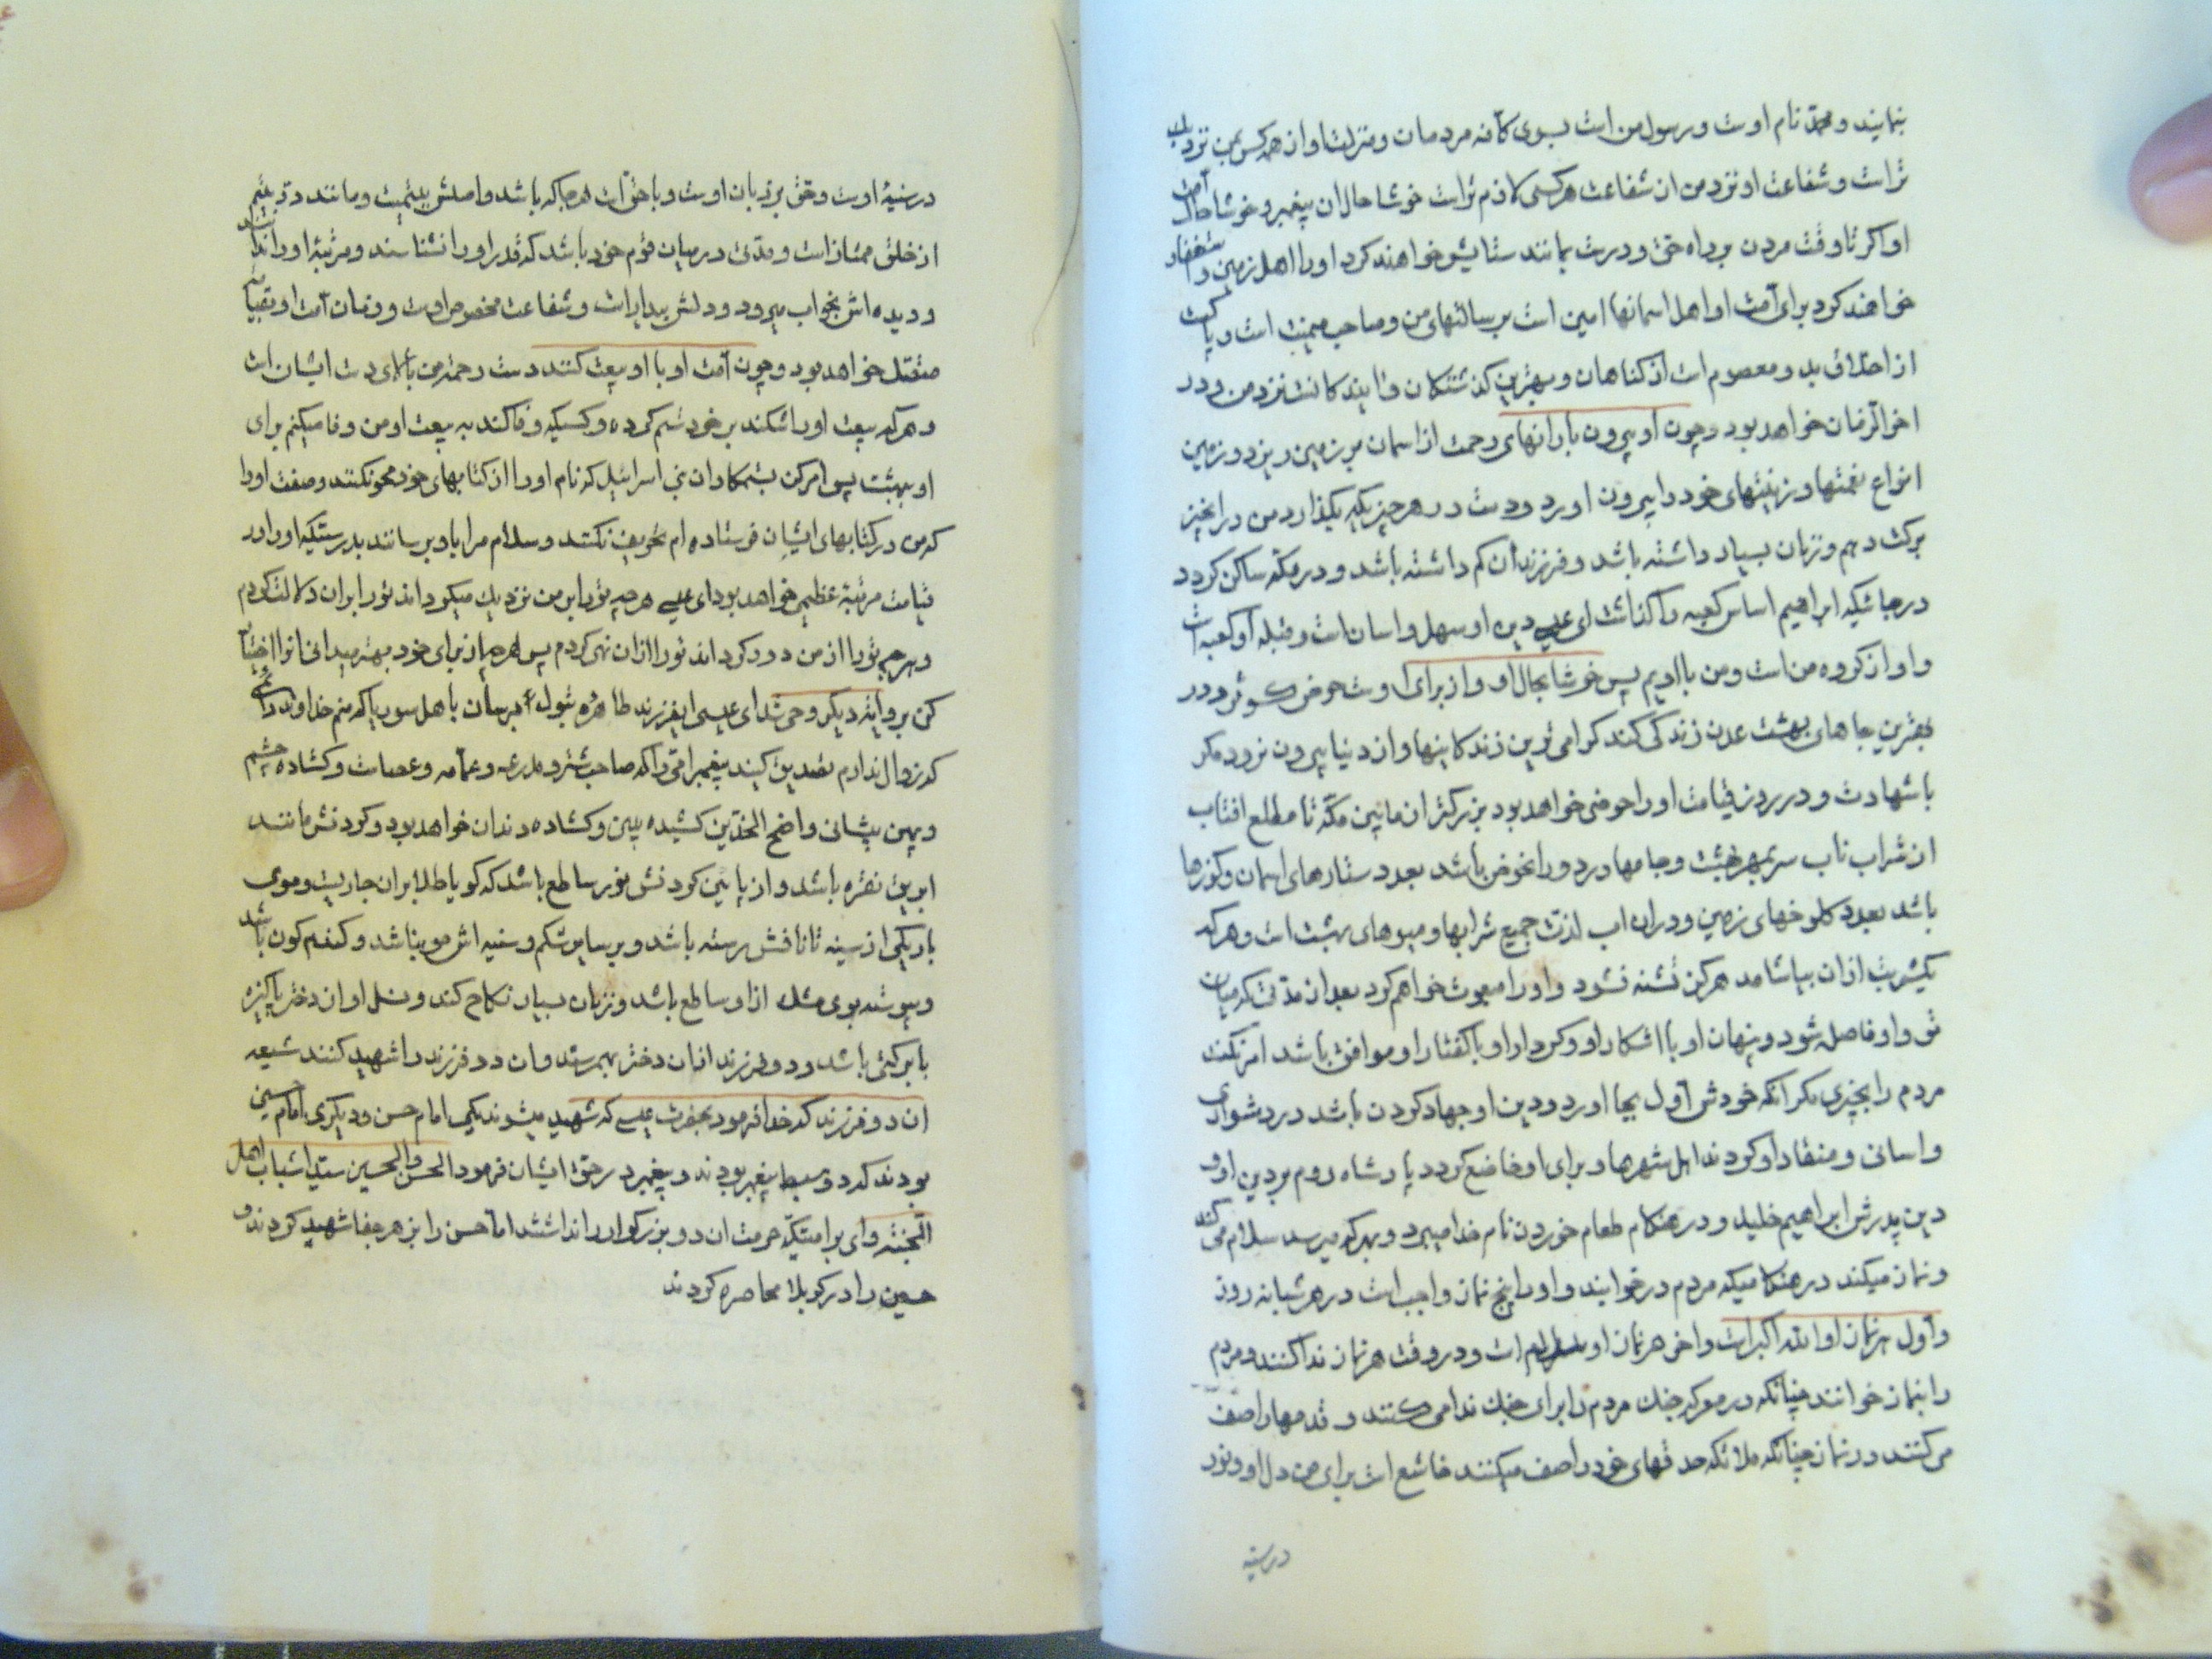 بنمایند و محمد نام اوست و رسول من است بسوی کافه مردمان و منزلت او از همه کس بمن نزدیک
تر است و شفاعت او نزد من از شفاعت هر کسی لازم تر است خوشا حال ان پیغمبر و خوشا حال امت
او اکر تا وقت مردن بر راه حق و درست بمانند ستایش خواهند کرد او را اهل زمین و استغفار
خواهند کرد برای امت او اهل اسمانها امین است بر رسالتهای من و صاحب میمنت است و پاکست
از اخلاق بد و معصوم است از کناهان و بهترین کذشتکان و ایندکانست نزد من و در
اخر الزمان خواهد بود و چون او بیرون بارانهای رحمت از اسمان بر زمین ریزد و زمین
انواع نعمتها و زینتهای خود را بیرون اورد و دست در هر چیزیکه بکذارد من در انچیز
برکت دهم و زنان بسیار داشته باشد و فرزندان کم داشته باشد و در مکه ساکن کردد
در جائیکه ابراهیم اساس کعبه را کذاشت ای عیسی دین او سهل و اسان است و قبله او کعبه است
و او از کروه من است و من با اویم پس خوشا بحال او و از برای اوست حوض کوثر و در
بهترین جاهای بهشت عدن زندکی کند کرامی ترین زندکانیها و از دنیا بیرون نرود مکر
با شهادت و در روز قیامت او را حوضی خواهد بود بزرکتر از مابین مکه تا مطلع افتاب
از شراب ناب سر بمهر بهشت و جامها در دور انحوض باشد بعدد ستارهای اسمان و کوزها
باشد بعدد کلوخهای زمین و در ان اب لذت جمیع شرابها و میوهای بهشت است و هر که
یکشربت از ان بیاشامد هرکز تشنه نشود و او را مبعوث خواهم کرد بعد از مدتی که میان
تو و او فاصله شود و پنهان او با اشکار او و کردار او با کفتار او موافق باشد امر نکند
مردم را بچیزی مکر انکه خودش اول بجا اورد و دین او جهاد کردن باشد در دشواری
و اسانی و منقاد او کردند اهل شهرها و برای او خاضع کردد پادشاه روم بر دین او و
دین پدرش ابراهیم خلیل و در هنکام طعام خوردن نام خدا میبرد و بهر که میرسد سلام می کند
و نماز میکند در هنکامیکه مردم در خوابند و او را پنج نماز واجب است در هر شبانه روز
و اول هر نماز او الله اکبر است و اخر هر نماز او سلام است و در وقت هر نماز ندا کنند و مردم
را بنماز خوانند چنانکه در معرکه جنک مردم را برای جنک ندا می کنند و قدمها را صف
می کنند در نماز چنانکه ملائکه قدمهای خود را صف میکنند خاشع است برای من دل او و نور
در سینه
در سینهٔ اوست و حق بر زبان اوست و با حق است هر جا که باشد و اصلش یتیمیست و مانند در یتیم
از خلق ممتاز است و مدتی در میان قوم خود باشد که قدر او را نشناسند و مرتبهٔ او را ندانند
و دیده اش بخواب میرود و دلش بیدار است و شفاعت مخصوص اوست و زمان امت او بقیامت
متصل خواهد بود و چون امت او با او بیعت کنند دست رحمت من بالای دست ایشان است
و هر که بیعت او را شکند بر خود ستم کرده و کسیکه وفا کند به بیعت او من وفا میکنم برای
او ببهشت پس امر کن بستمکاران بنی اسرائیل که نام او را از کتابهای خود محو نکنند و صفت او را
که من در کتابهای ایشان فرستاده ام تحریف نکنند و سلام مرا باو برسانند بدرستیکه او را در
قیامت مرتبهٔ عظیمی خواهد بود ای عیسی هر چه تو را بمن نزدیک میکرداند تو را بران دلالت کردم
و هر چه تو را از من دور کرداند تو را از ان نهی کردم پس هر چه از برای خود بهتر میدانی انرا اختیار
کن بروایه دیکر وحی شد ای عیسی ایفرزند طاهره بتول برسان باهل سوریا که منم خداوند دائمی
که زوال ندارم تصدیق کنید پیغمبر امی را که صاحب شتر و مدرعه و عمامه و عصاست و کشاده چشم
و پهن پیشانی واضح الخدین کشیده بینی و کشاده دندان خواهد بود و کردنش مانند
ابریق نقره باشد و از پائین کردنش نور ساطع باشد که کویا طلا بران جاریست و موی
باریکی از سینه تا نافش رسته باشد و بر سایر شکم و سینه اش مو نباشد و کندم کون باشد
و پیوسته بوی مشک از او ساطع باشد و زنان بسیار نکاح کند و نسل او از دختر پاکیزه
با برکتی باشد و دو فرزند از ان دختر بهمرساند و ان دو فرزند را شهید کنند شیعه
ان دو فرزند که خدا فرمود بحضرت عیسی که شهید میشوند یکی امام حسن و دیکری امام حسین
بودند که دو سبط پیغمبر بودند و پیغمبر در حق ایشان فرمود الحسن والحسین سیدا شباب اهل
الجنته وای بر امتیکه حرمت ان دو بزرکوار را نداشتند اما حسن را بزهر جفا شهید کردند و
حسین را در کربلا محاصره کردند